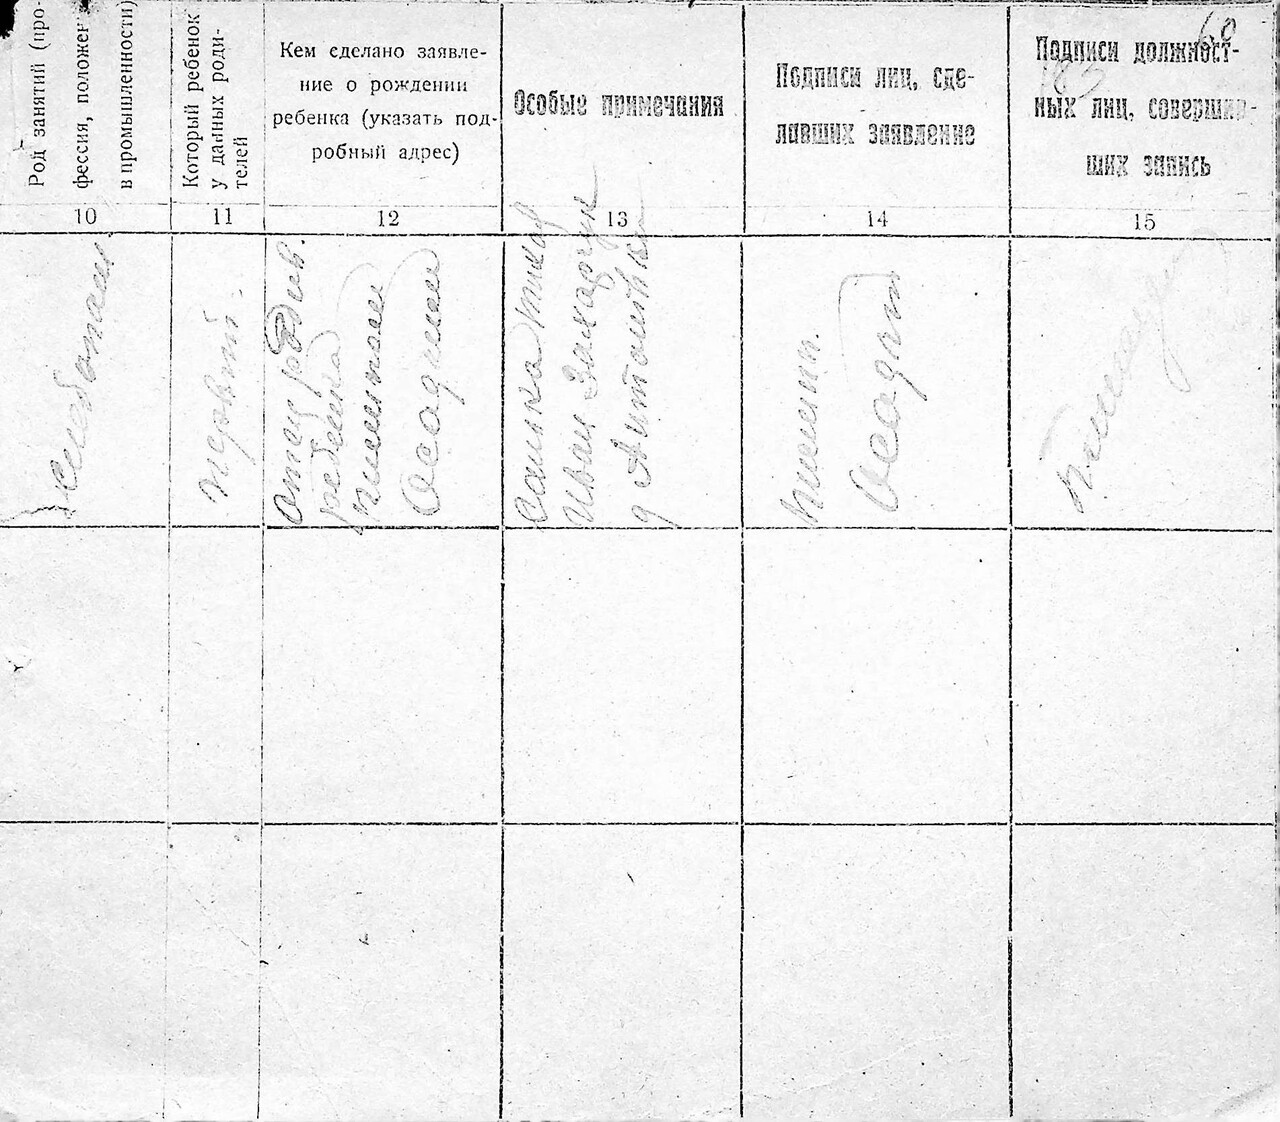 60
183
Род занятий (про-
фессия, положен
в промышленности)
Который ребенок
у данных роди-
телей
Кем сделано заявле-
ние о рождении
ребенка (указать под-
робный адрес)
Особые примечания
Подписи лиц, сде-
лавших заявление
Подписи должност-
ных лиц, соверши-
ших запись
10
11
12
13
14
15
первый
отец
ребенка
Осадчий
Иван Захарчук
Осадчий